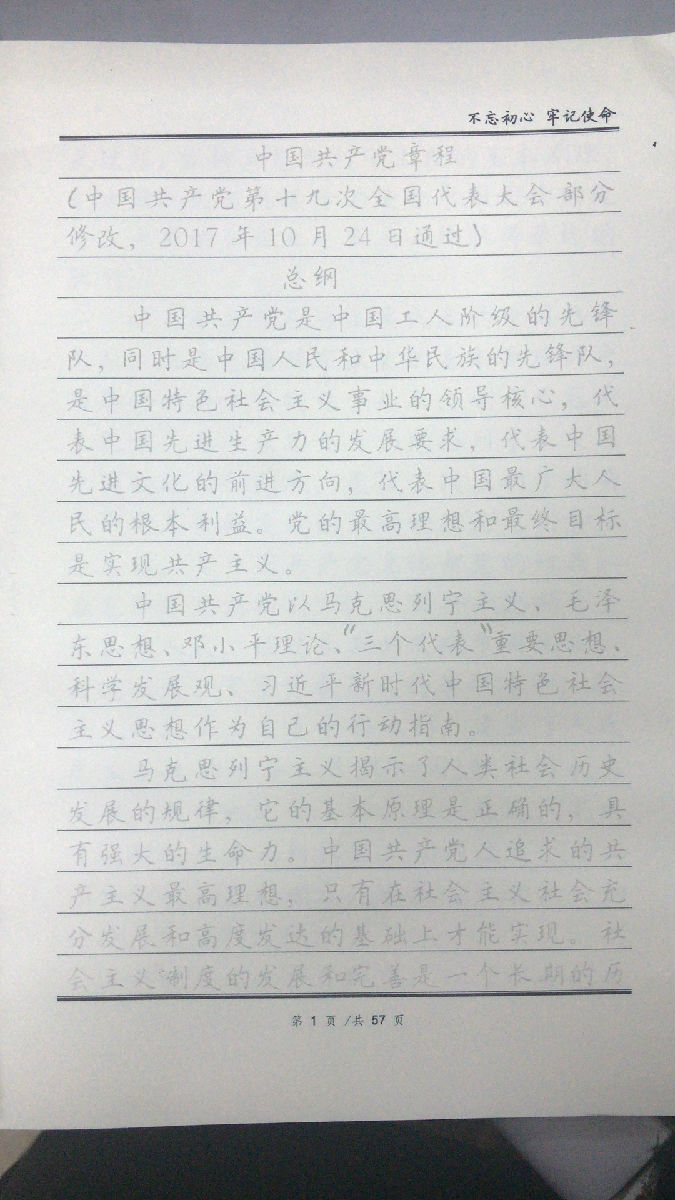 不忘初心 牢记使命
中国共产党章程
(中国共产党第十九次全国代表大会部分
修改，2017 年 10 月 24 日通过)
总纲
中国共产党是中国工人阶级的先锋
队，同时是中国人民和中华民族的先锋队，
是中国特色社会主义事业的领导核心，代
表中国先进生产力的发展要求，代表中国
先进文化的前进方向，代表中国最广大人
民的根本利益。党的最高理想和最终目标
是实现共产主义。
中国共产党以马克思列宁主义、毛泽
东思想、邓小平理论、“三个代表”重要思想、
科学发展观、习近平新时代中国特色社会
主义思想作为自己的行动指南。
马克思列宁主义揭示了人类社会历史
发展的规律，它的基本原理是正确的，具
有强大的生命力。中国共产党人追求的共
产主义最高理想，只有在社会主义社会充
分发展和高度发达的基础上才能实现。社
会主义制度的发展和完善是一个长期的历
第 1 页 /共 57 页